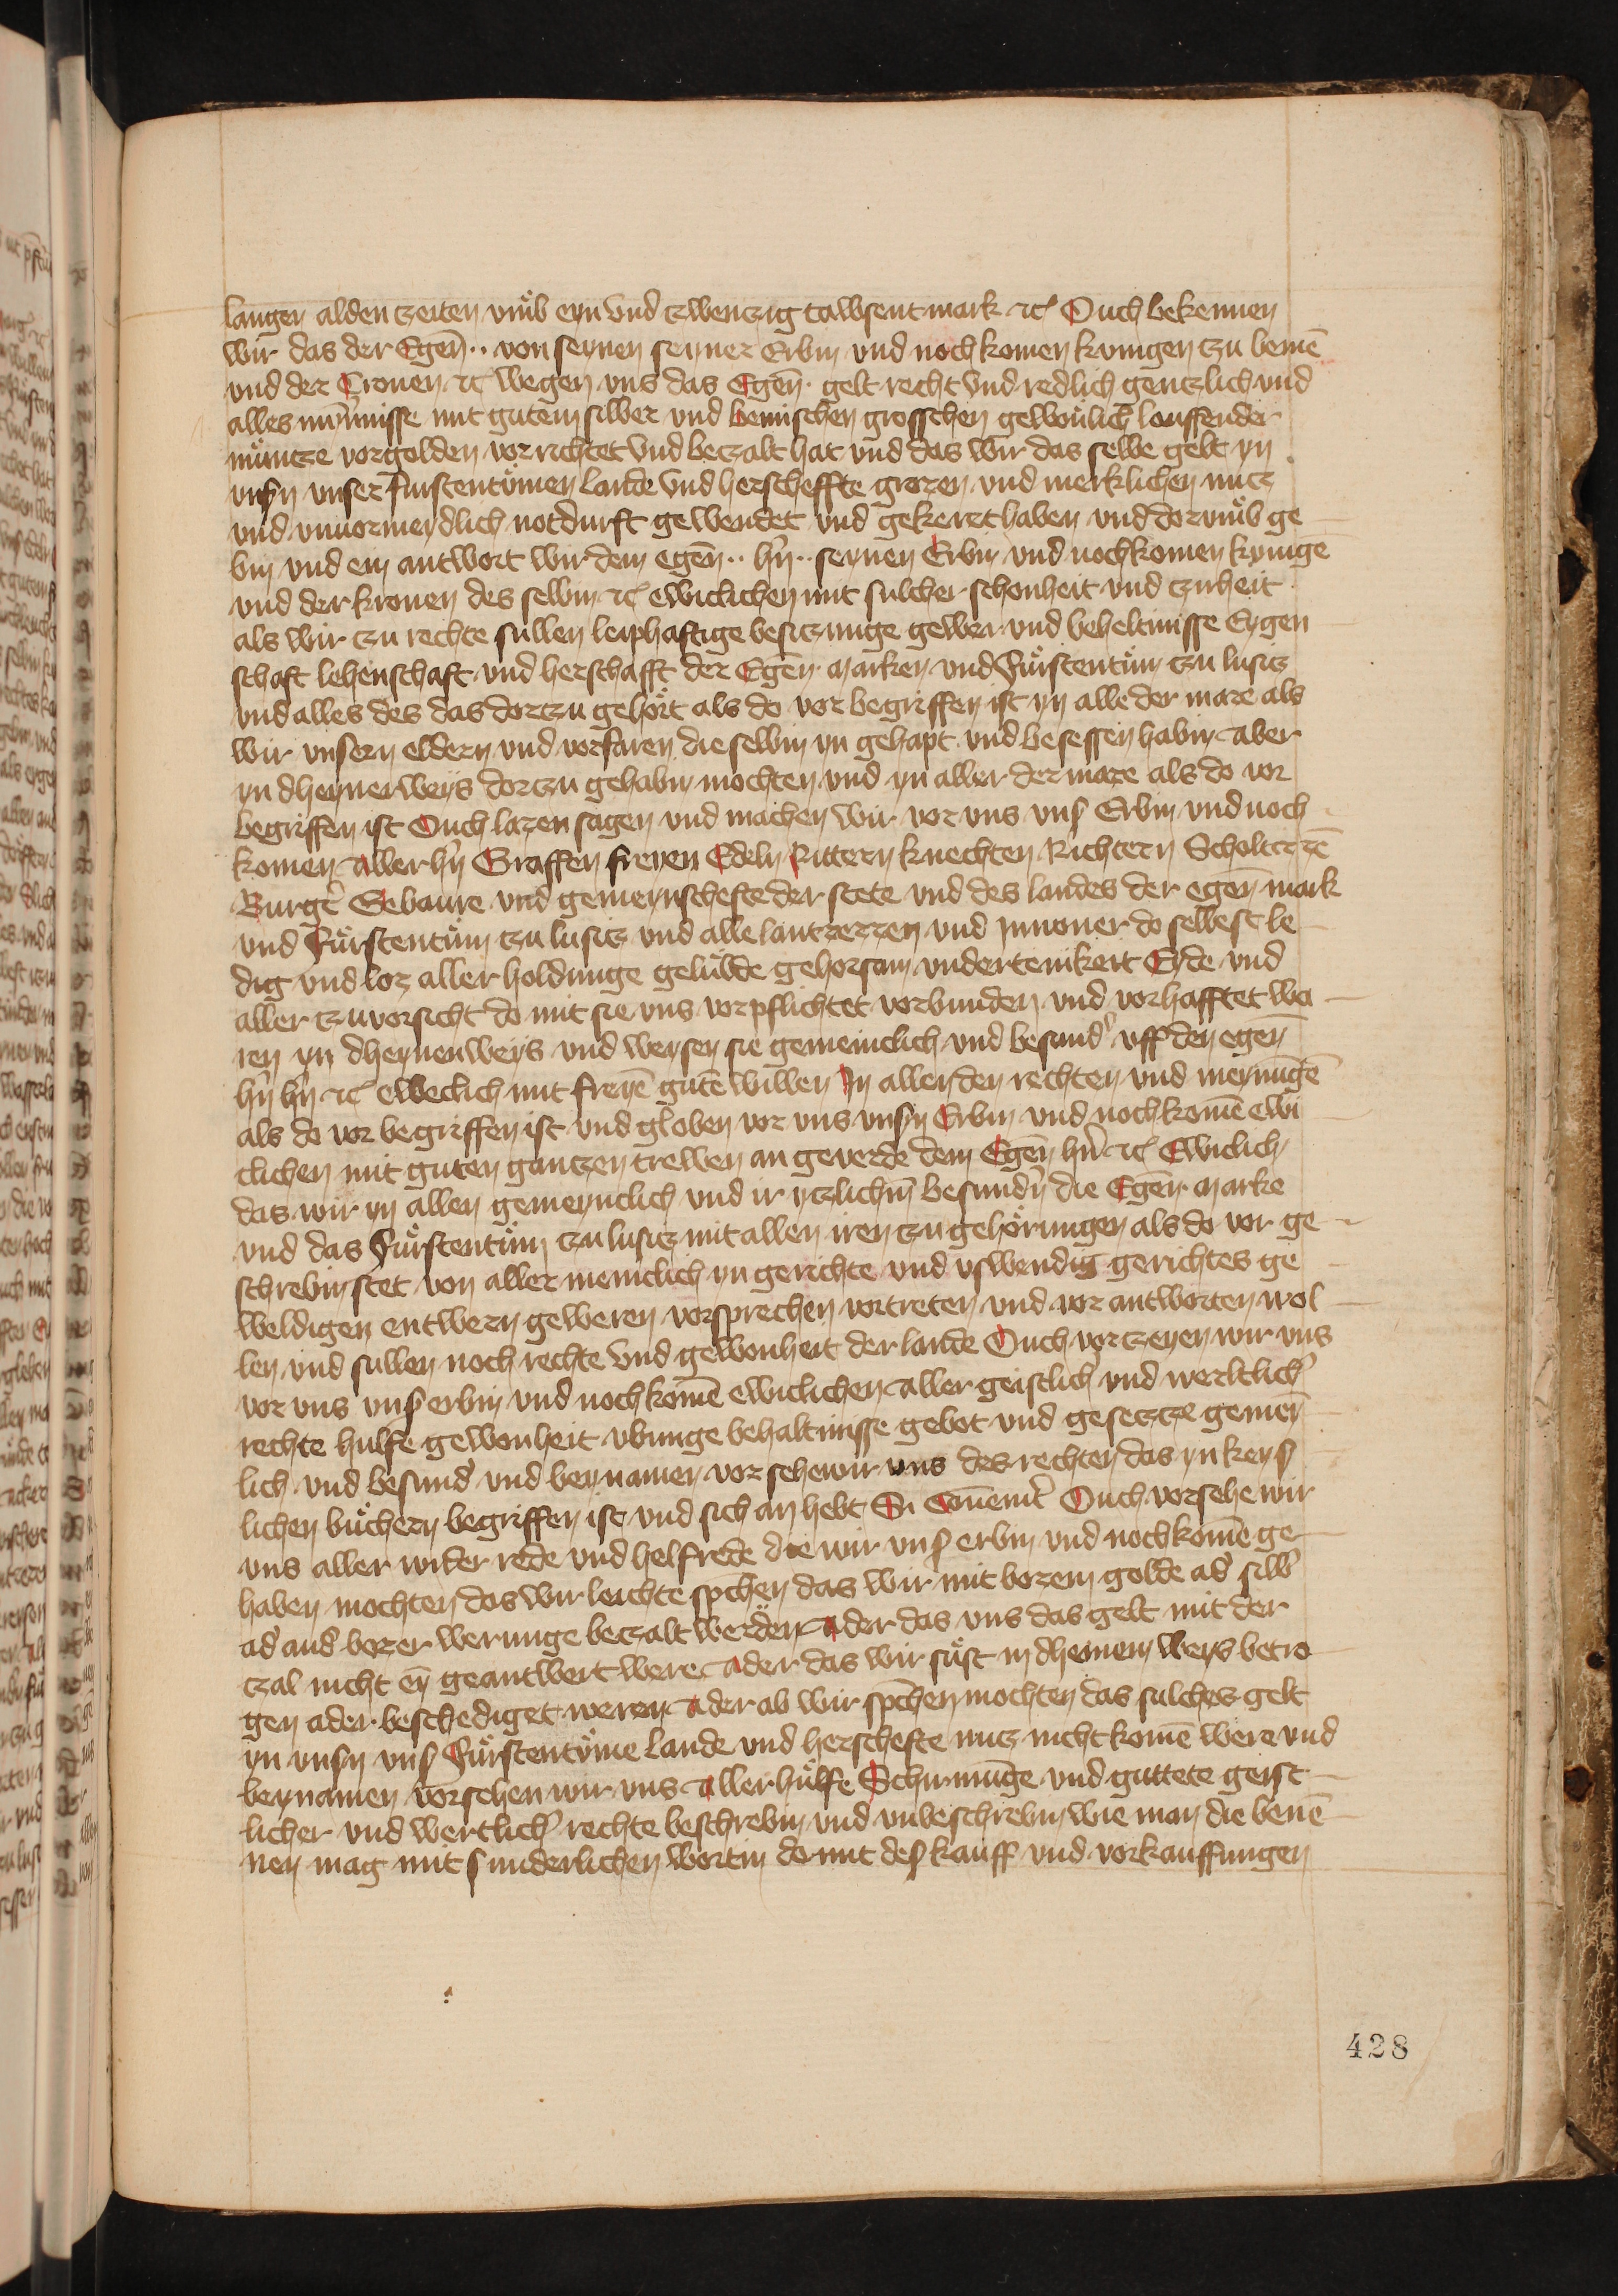 langen alden zeiten vmͤb eyn vnd tzwenczig tawsent mark ꝛc Ouch bekennen
wir das der Egen̄ ·· von seynen seyner Erbin vnd noch komen kunigen tzu bemē
vnd der Cronen ꝛc wegen vns das Egen̄ · gelt recht vnd redlich gentzlich vnd
alles mynnisse mit gutem silber vnd bemischen grosschen gewonlich louffender
muͤntze vorgolden vorrichtet vnd betzalt hat vnd das wir das selbe gelt yn
vnsn vnser Furstentuͤmen lande vnd herscheffte grozen vnd merklichen nutz
vnd vnuormeydlich notdurft gewendet vnd gekerzt haben vnd dorvmͤb ge
bin vnd ein antwort wir dem egen̄ ·· hn̄ ·· seynen Erbin vnd nochkomen kynigē
vnd der kronen des selbin ꝛc ewiclichen mit sulcher schonheit vnd tzuheit
als wir tzu rechte sullen leiphaftige besitzunge gewer vnd beheltnisse Eygen
schaft lehenschaft vnd herschafft der Egen̄ · Marken vnd Fuͤrstentuͤm tzu lusitz
vnd alles des das dortzu gehoͤrt als do vor begriffen ist yn alle der maze als
wir vnsern eldern vnd vorfaren die selbin yn gehapt vnd besessen habin aber
yn dheynerweys dortzu gehabn mochten vnd yn aller der maze als do vor
begriffen ist Ouch lazen sagen vnd machen wir vor vns vnsˢ Erbin vnd noch
komen aller hn̄ Graffen freyen Edeln Rittern knechten Richtern Scholtezzē
Burgˢ Gebaure vnd gemeynschefte der stete vnd des landes der egen̄ mark
vnd Fuͤrstentuͤm tzu lusitz vnd alle lantzezzen vnd Innoner do selbest le
dig vnd loz aller holdunge geluͤbde gehorsam vndertenikeit Eyde vnd
aller tzuvorsicht do mit sie vns vorpflichtet vorbunden vnd vorhafftet we
ren yn dheynenweys vnd weysen sie gemeinclich vnd besundˢ vff den egen̄
hn̄ hn̄ ꝛc eweclich mit freyē gutē willen In allen den rechten vnd meynūgē
als do vor begriffen ist vnd globen vor vns vnsn Erbin vnd nochkomē ewi
clichen mit guten gantzen trewen an geuerde dem Egen̄ hn̄ ꝛc Ewiclich
das wir yn allen gemeynclich vnd ir ytzlichm̄ besundˢn die Egen̄ · Marke
vnd das Fuͤrstentuͤm tzu lusitz mit allen iren tzugehoͤrungen als do vor ge
schrebin stet von aller meniclich yn gerichte vnd vswendig gerichtes ge
weldigen entwern geweren vorsprechen vortreten vnd vor antworten wol
len vnd sullen noch rechte vnd gewonheit der lande Ouch vortzeyen wir vns
vor vns vnsˢ erbin vnd nochkomē ewiclichen aller geistlich vnd werltlichˢ
rechte hulfe gewonheit vbunge behaltnisse gebot vnd gesetze gemein
lich vnd besundˢ vnd beynamen vor sehewir vns des rechten das yn keysˢ
lichen buͤchern begriffen ist vnd sich an hebt Si Conuenitˢ Ouch vorsehe wir
vns aller wider rede vnd helfrede die wir vnsˢ erbin vnd nochkomē ge
haben mochten das wir leichte spchen das wir mit bozem golde adˢ silbˢ
adˢ andˢ bozer werunge betzalt weͤrden ader das vns das gelt mit der
tzal nicht eyn geantwert were ader das wir suͤst in dheinem weys betro
gen ader beschediget weren ader ab wir spchen mochten das sulches gelt
yn vnsn vnsˢ Fuͤrstentuͤme lande vnd herschefte nutz nicht komē were vnd
beynamen vorsehen wir vns aller huͤlfe Schirmūge vnd guttete geist
licher vnd wertlichˢ rechte beschrebin vnd vnbeschrebin wie man die benē
nen mag mit sunderlichen wortin domit desˢ kauff vnd vorkauffungen
428